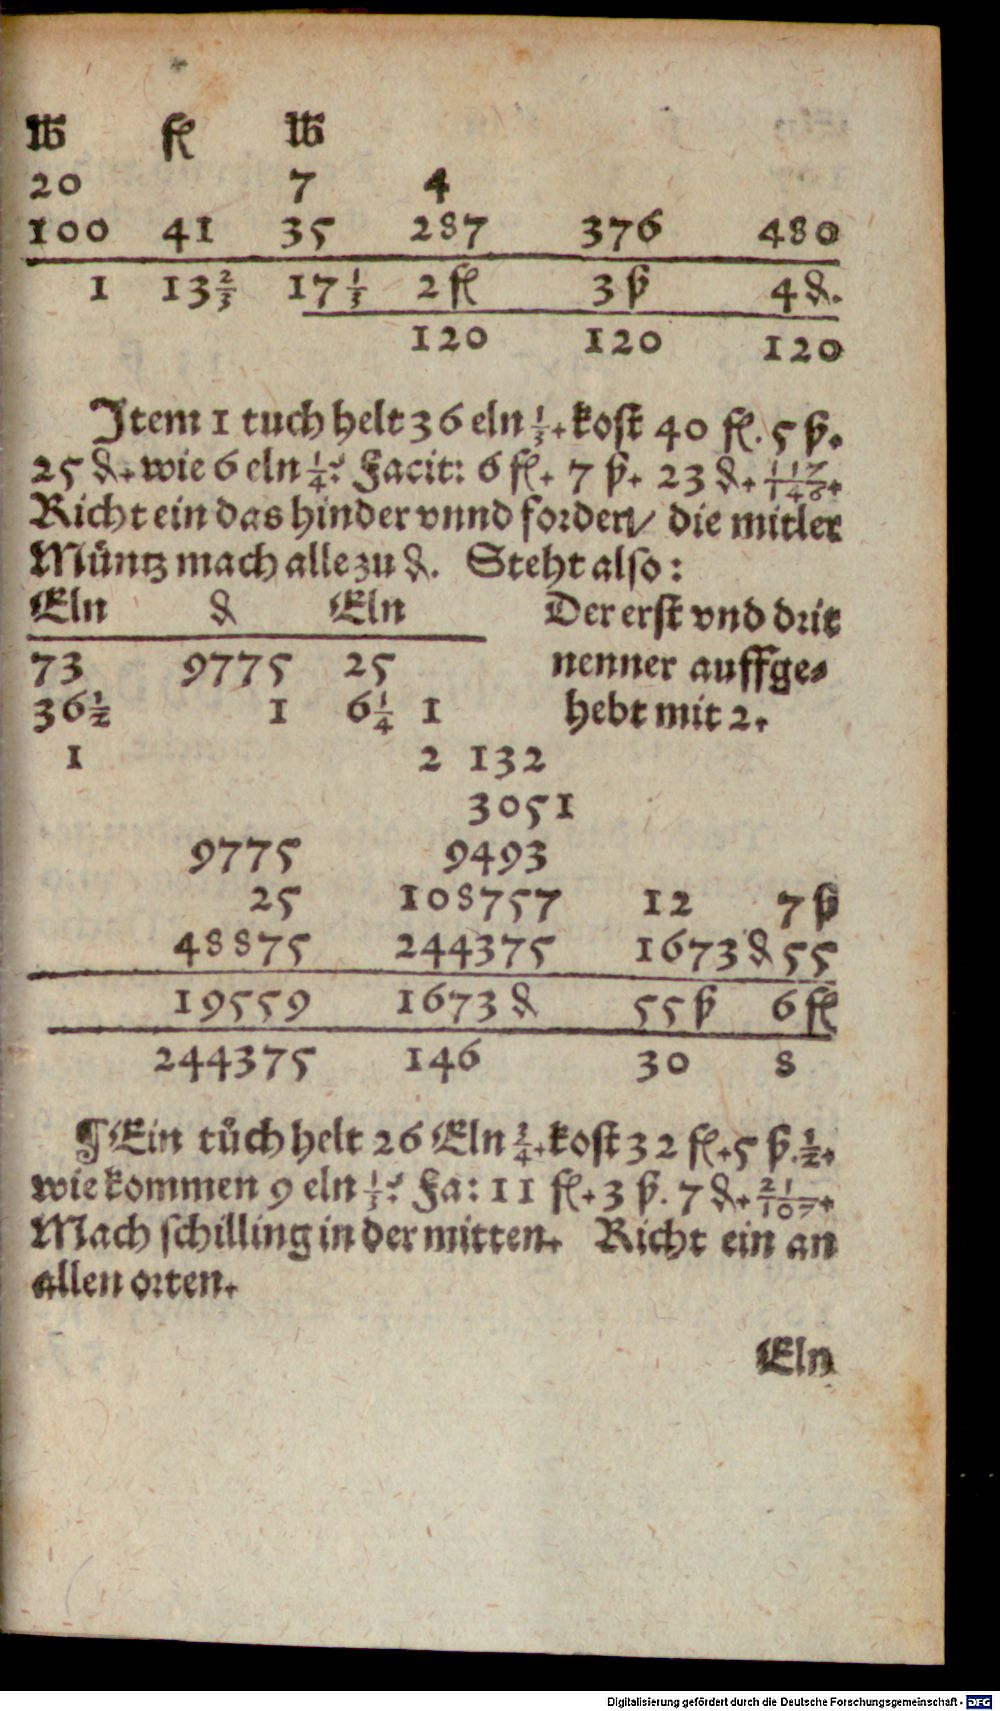 ℔ fl ℔
20 7 4
100 41 35 287 376 480
1 13 2/3 17 1/3 2 fl 3 ß 4 ₰.
120 120 120
Item 1 tuch helt 36 eln 1/3. kost 40 fl. 5 ß.
25 ₰. wie 6 eln 1/4? Facit: 6 fl. 7 ß. 23 ₰. 117/146.
Richt ein das hinder vnnd forder/ die mitler
Müntz mach alle zu ₰. Steht also:
Eln ₰ Eln Der erst vnd drit
73 9775 25 nenner auffge-
36 1/2 1 6 1/4 1 hebt mit 2.
1 2 132
3051
9775 9493
25 108757 12 7 ß
48875 244375 1673 ₰ 55
19559 1673 ₰ 55 ß 6 fl
244375 146 30 8
¶ Ein tůch helt 26 Eln 3/4. kost 32 fl. 5 ß. 1/2.
wie kommen 9 eln 1/3? Fa: 11 fl. 3 ß. 7 ₰. 21/107.
Mach schilling in der mitten. Richt ein an
allen orten.
Eln
Digitalisierung gefördert durch die Deutsche Forschungsgemeinschaft - DFG